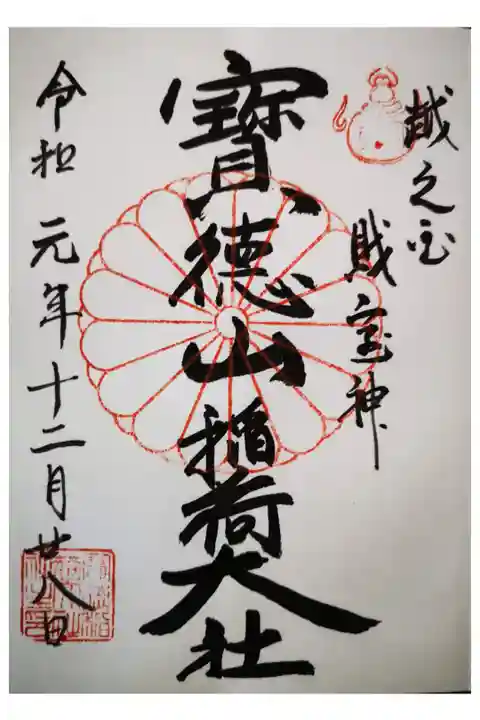 越之宝
財宝神
寶徳山稲荷大社
令和元年十二月廿八日